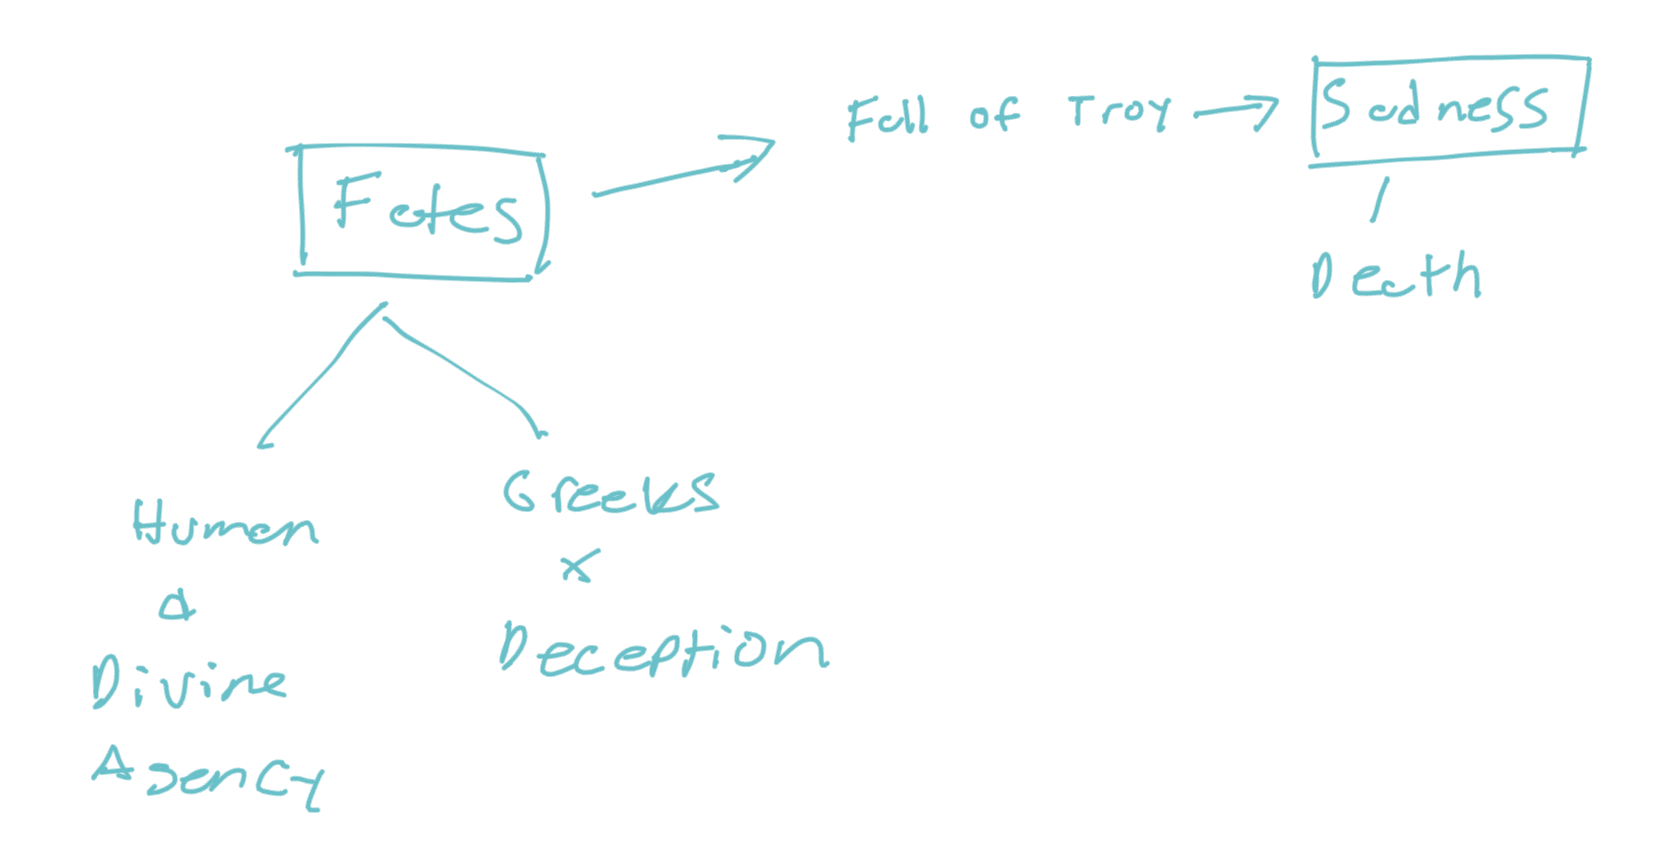 Fall of Troy → Sadness
Fates
Death
Human
&
Divine
Agency
Greeks
x
Deception